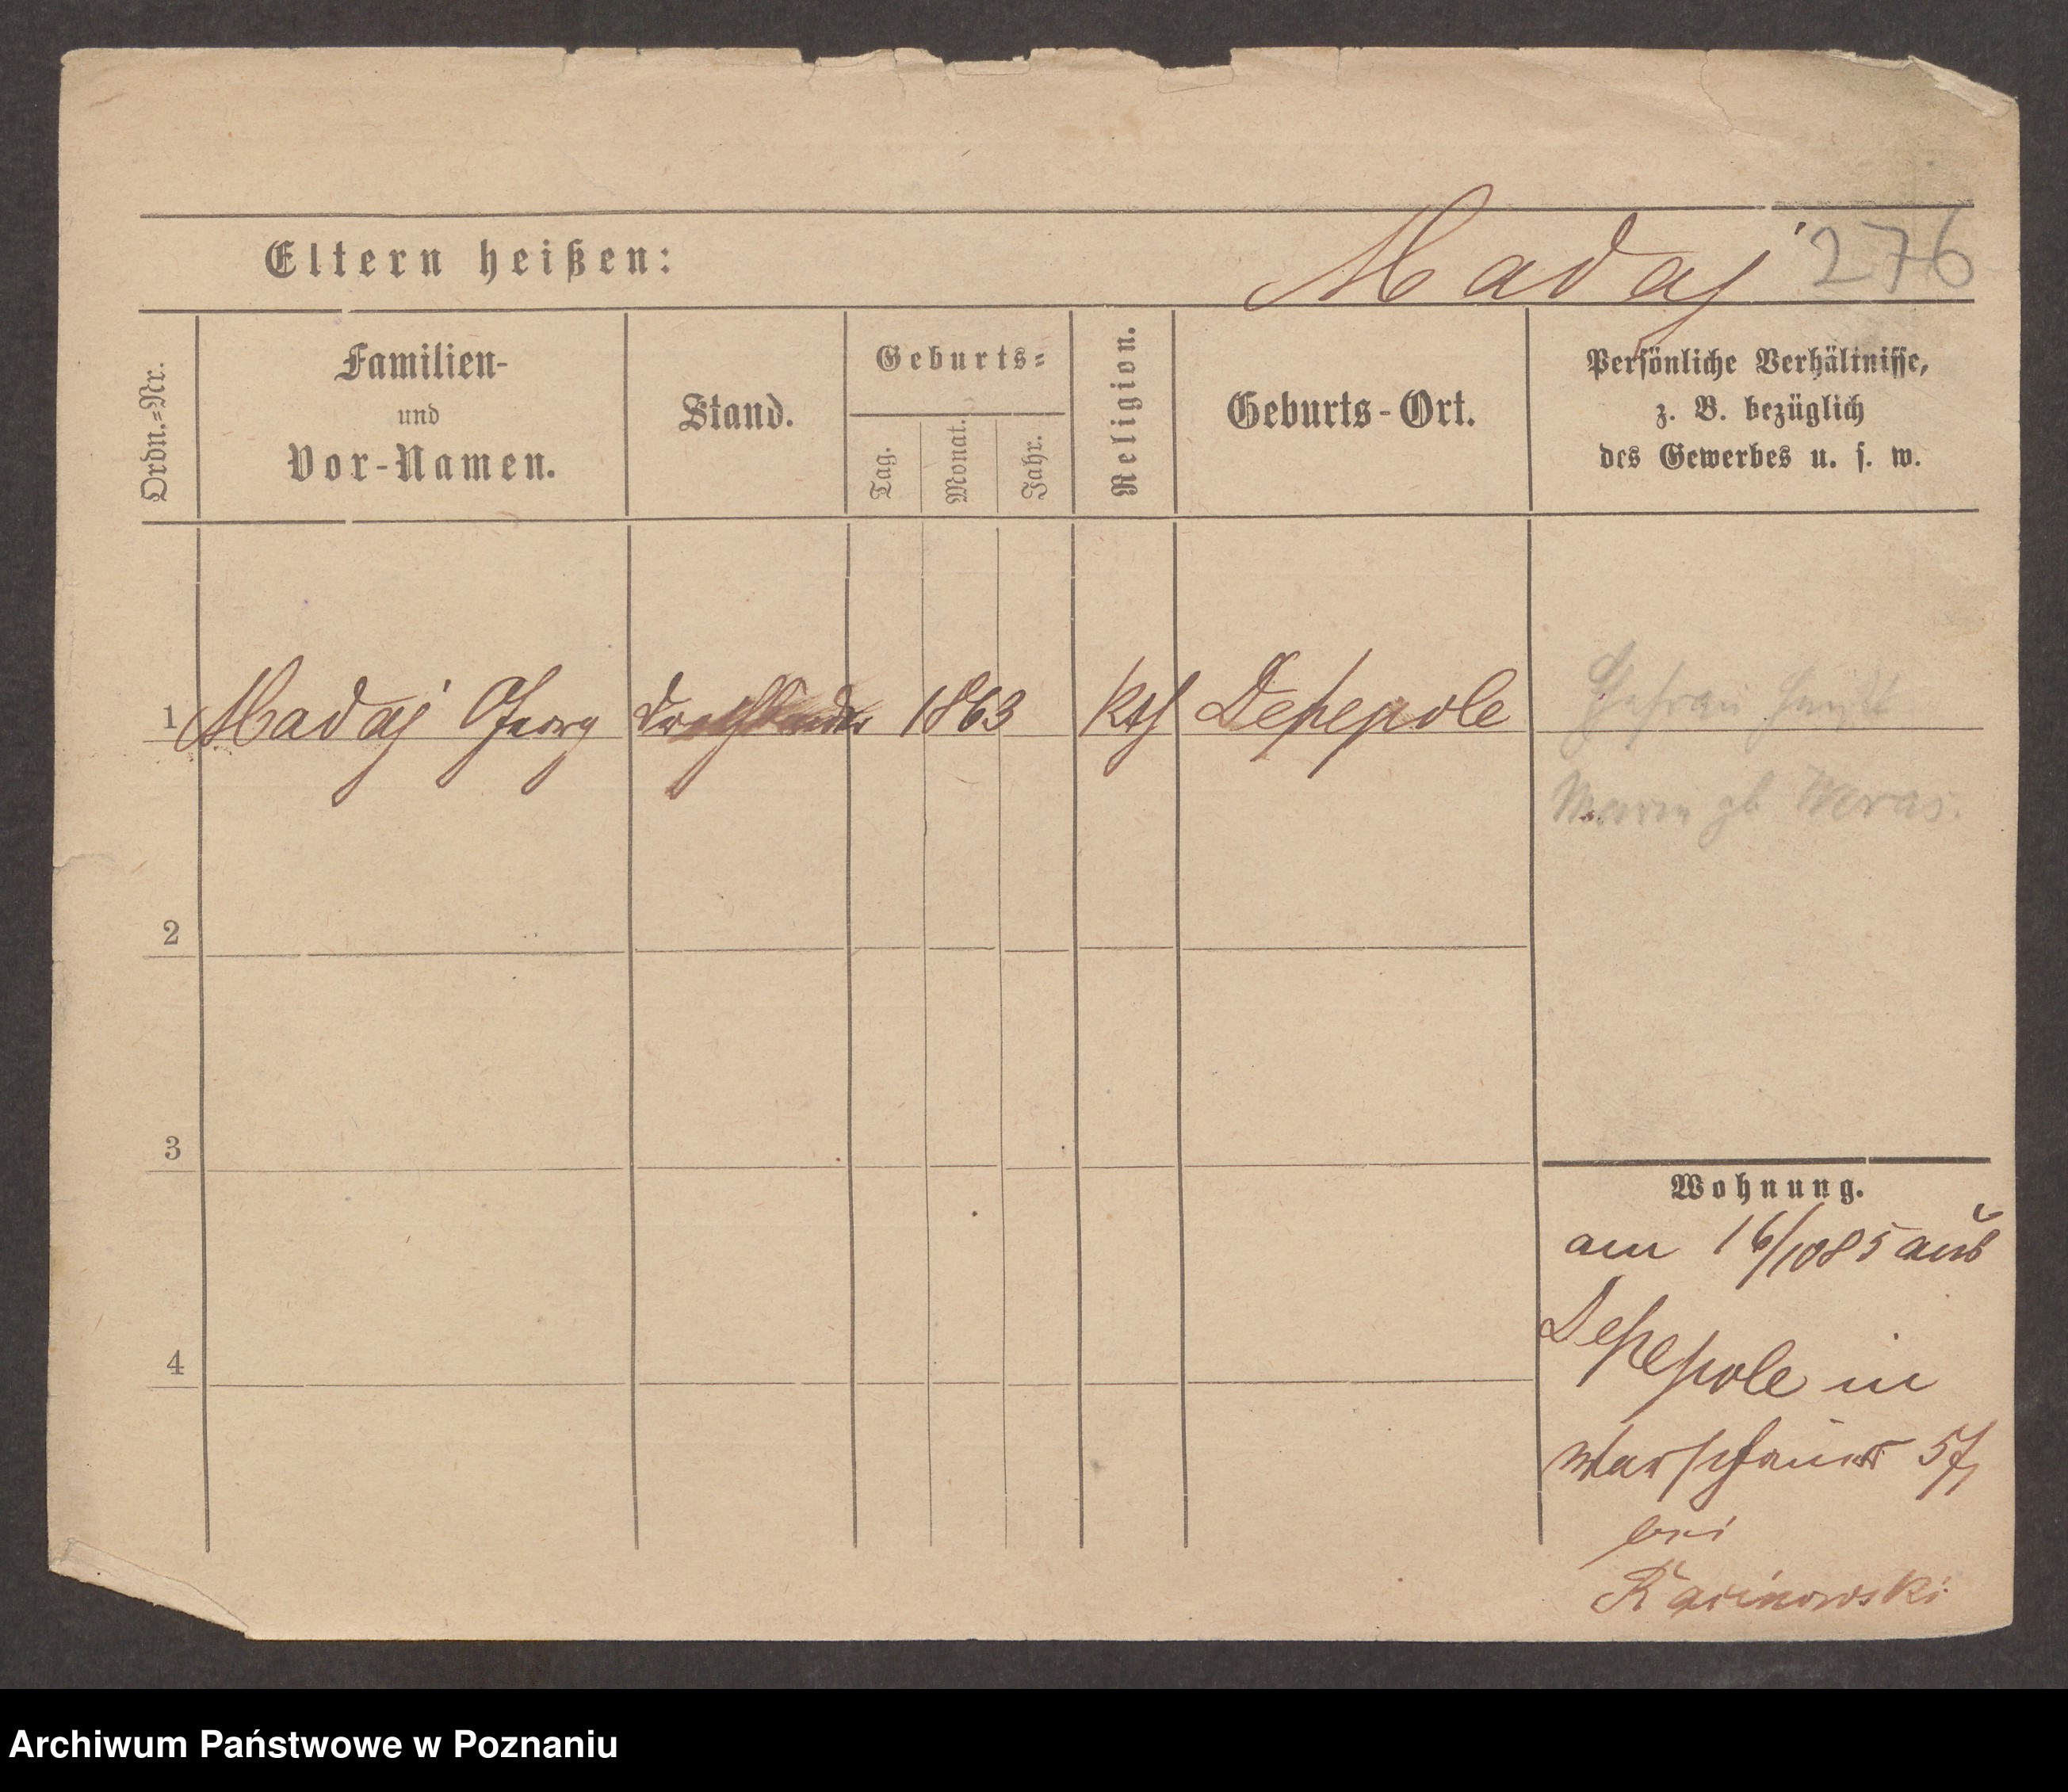 Eltern heißen:
Madaj 276
Ordn.=Nr.
Familien-
und
Vor-Namen.
Stand.
Geburts=
Tag.
Monat.
Jahr.
Religion.
Geburts-Ort.
Persönliche Verhältnisse,
z. B. bezüglich
des Gewerbes u. s. w.
1 Madaj Georg 1863 Kth Depepole
gb
2
3
4
Wohnung.
am 16/1085 aus
Depepole in
Warschauer 57,
bei
Archiwum Państwowe w Poznaniu